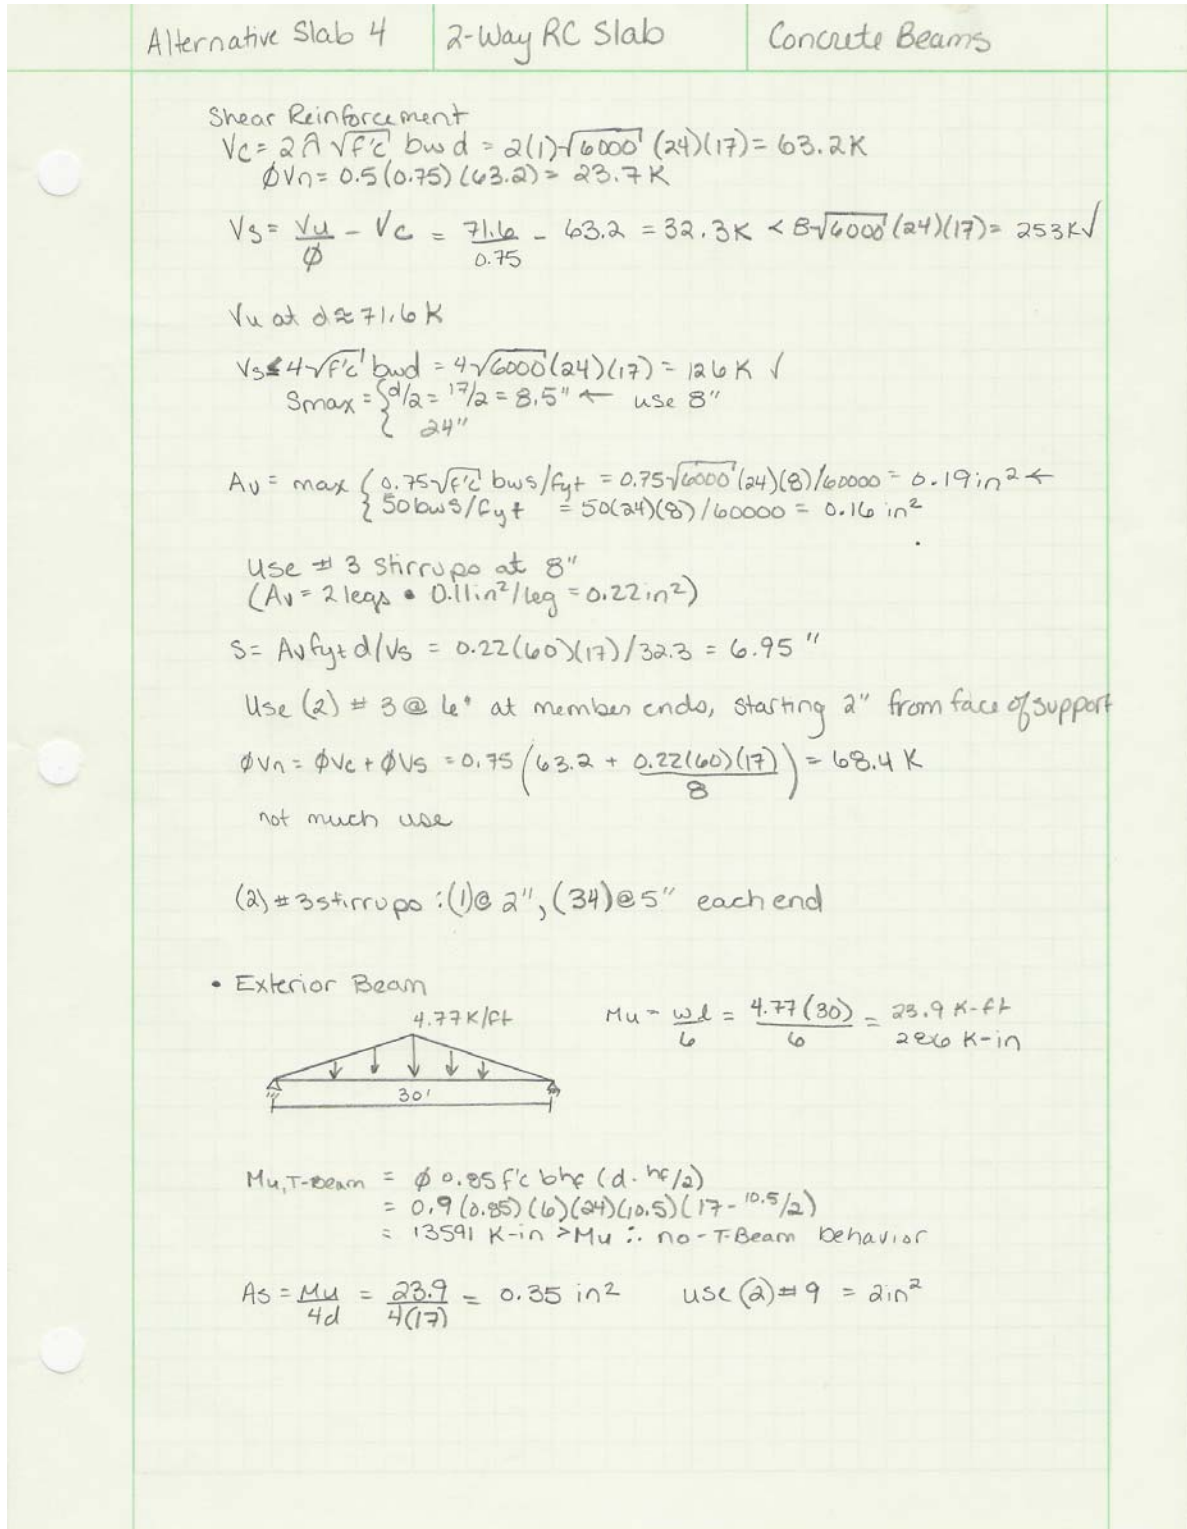 Alternative Slab 4 2-Way RC Slab Concrete Beams
Shear Reinforcement
Vc = 2λ√f'c bwd = 2(1)√6000 (24)(17) = 63.2K
ØVn = 0.5(0.75)(63.2) = 23.7K
Vs = Vu/Ø - Vc = 71.6/0.75 - 63.2 = 32.3K < 8√6000 (24)(17) = 253K√
Vu at d ≈ 71.6 K
Vs ≤ 4√f'c bwd = 4√6000 (24)(17) = 126K √
Smax = { d/2 = 17/2 = 8.5" ← use 8"
24"
Av = max { 0.75√f'c bws/fyt = 0.75√6000 (24)(8)/60000 = 0.19in² ←
50bws/fyt = 50(24)(8)/60000 = 0.16 in²
Use # 3 stirrups at 8"
(Av = 2 legs • 0.11in²/leg = 0.22in²)
S = Av fyt d/Vs = 0.22(60)(17)/32.3 = 6.95 "
Use (2) # 3 @ 6" at member ends, starting 2" from face of support
ØVn = ØVc + ØVs = 0.75 (63.2 + 0.22(60)(17)/8) = 68.4 K
not much use
(2) #3 stirrups : (1)@ 2", (34)@ 5" each end
• Exterior Beam
4.77K/ft Mu = wl/6 = 4.77(30)/6 = 23.9 K-ft
286 K-in
30'
Mu,T-Beam = Ø 0.85 f'c bhf (d - hf/2)
= 0.9(0.85)(6)(24)(10.5)(17 - 10.5/2)
= 13591 K-in > Mu ∴ no-T-Beam behavior
As = Mu/4d = 23.9/4(17) = 0.35 in² use (2) # 9 = 2in²